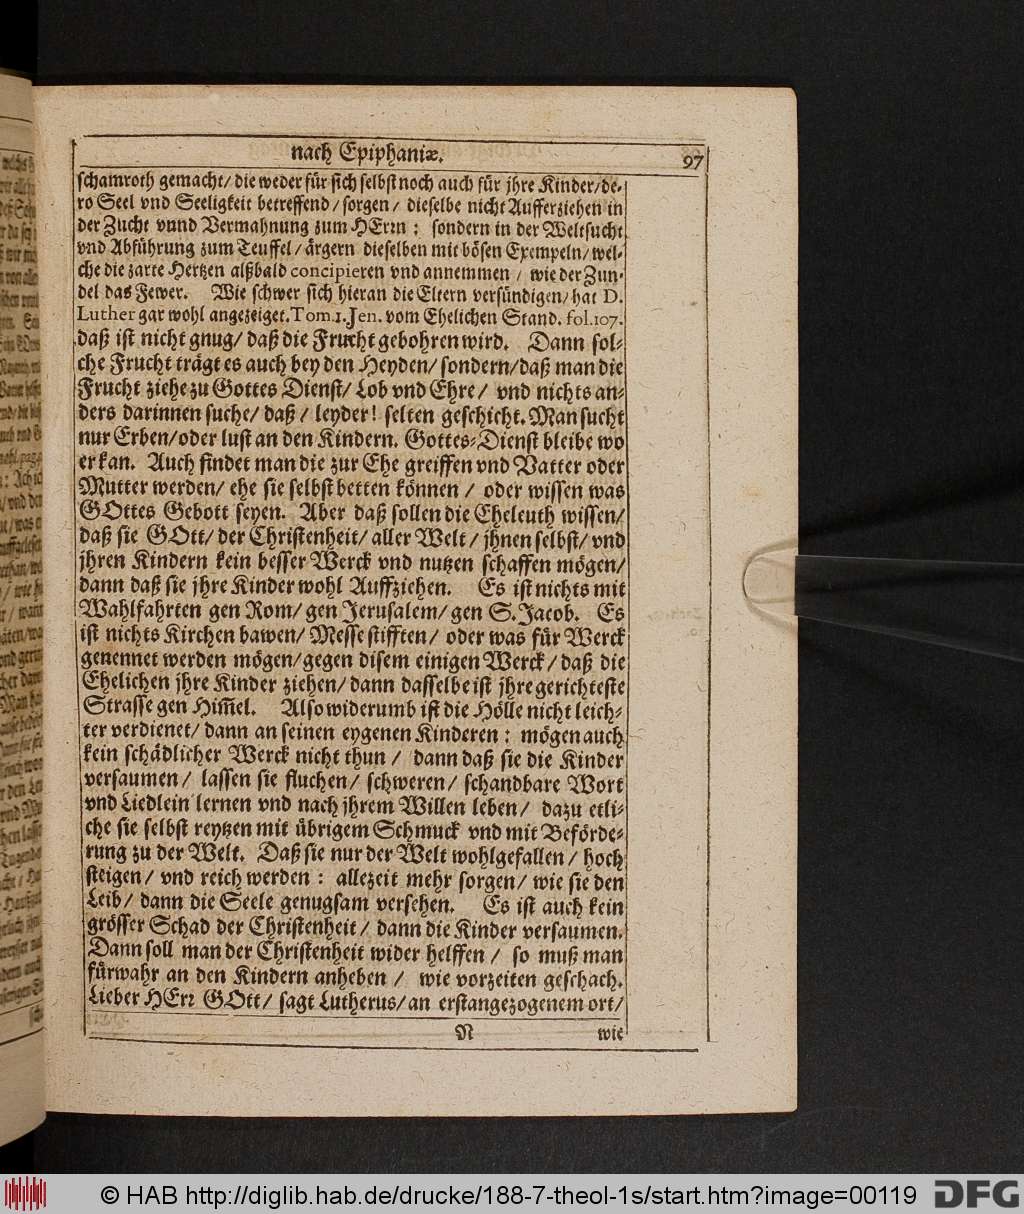 nach Epiphaniæ.
97
schamroth gemacht/ die weder für sich selbst noch auch für jhre Kinder/ de-
ro Seel vnd Seeligkeit betreffend/ sorgen/ dieselbe nicht Aufferziehen in
der Zucht vnnd Vermahnung zum HErrn: sondern in der Weltsucht
vnd Abführung zum Teuffel/ ärgern dieselben mit bösen Exempeln/ wel-
che die zarte Hertzen alßbald concipieren vnd annemmen / wie der Zun-
del das Fewer. Wie schwer sich hieran die Eltern versündigen/ hat D.
Luther gar wohl angezeiget. Tom. 1. Jen. vom Ehelichen Stand. fol. 107.
daß ist nicht gnug/ daß die Frucht gebohren wird. Dann sol-
che Frucht trägt es auch bey den Heyden/ sondern/ daß man die
Frucht ziehe zu Gottes Dienst/ Lob vnd Ehre/ vnd nichts an-
ders darinnen suche/ daß/ leyder! selten geschicht. Man sucht
nur Erben/ oder lust an den Kindern. Gottes-Dienst bleibe wo
er kan. Auch findet man die zur Ehe greiffen vnd Vatter oder
Mutter werden/ ehe sie selbst betten können / oder wissen was
GOttes Gebott seyen. Aber daß sollen die Eheleuth wissen/
daß sie GOtt/ der Christenheit/ aller Welt/ jhnen selbst/ vnd
jhren Kindern kein besser Werck vnd nutzen schaffen mögen/
dann daß sie jhre Kinder wohl Auffziehen. Es ist nichts mit
Wahlfahrten gen Rom/ gen Jerusalem/ gen S. Jacob. Es
ist nichts Kirchen bawen/ Messe stifften/ oder was für Werck
genennet werden mögen/ gegen disem einigen Werck/ daß die
Ehelichen jhre Kinder ziehen/ dann dasselbe ist jhre gerichteste
Strasse gen Him̃el. Also widerumb ist die Hölle nicht leich-
ter verdienet/ dann an seinen eygenen Kinderen: mögen auch
kein schädlicher Werck nicht thun / dann daß sie die Kinder
versaumen/ lassen sie fluchen/ schweren/ schandbare Wort
vnd Liedlein lernen vnd nach jhrem Willen leben/ dazu etli-
che sie selbst reytzen mit übrigem Schmuck vnd mit Beförde-
rung zu der Welt. Daß sie nur der Welt wohlgefallen/ hoch
steigen/ vnd reich werden: allezeit mehr sorgen/ wie sie den
Leib/ dann die Seele genugsam versehen. Es ist auch kein
grösser Schad der Christenheit/ dann die Kinder versaumen.
Dann soll man der Christenheit wider helffen/ so muß man
fürwahr an den Kindern anheben / wie vorzeiten geschach.
Lieber HErr GOtt/ sagt Lutherus/ an erstangezogenem ort/
N
wie
© HAB http://diglib.hab.de/drucke/188-7-theol-1s/start.htm?image=00119
DFG